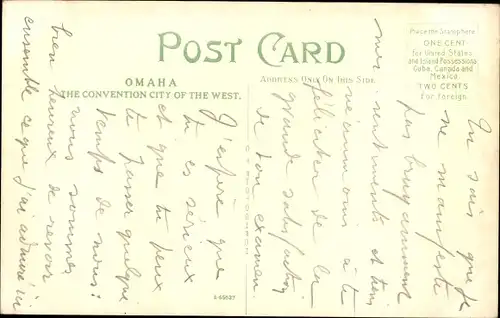 POST CARD
OMAHA
THE CONVENTION CITY OF THE WEST.
ADDRESS ONLY ON THIS SIDE
Place the Stamp here
ONE CENT
for United States
and Island Possessions
Cuba, Canada and
Mexico
TWO CENTS
for Foreign
Tu sais que je
ne manifeste
pas bruyamment
mes sentiments et tiens
néanmoins à te
féliciter de la
grande satisfaction
de ton examen.
J'espère que
tu es sérieux
et que tu peux
te passer quelque
temps de nous!
nous sommes
bien heureux de revoir
ensemble ce que j'ai admiré ici